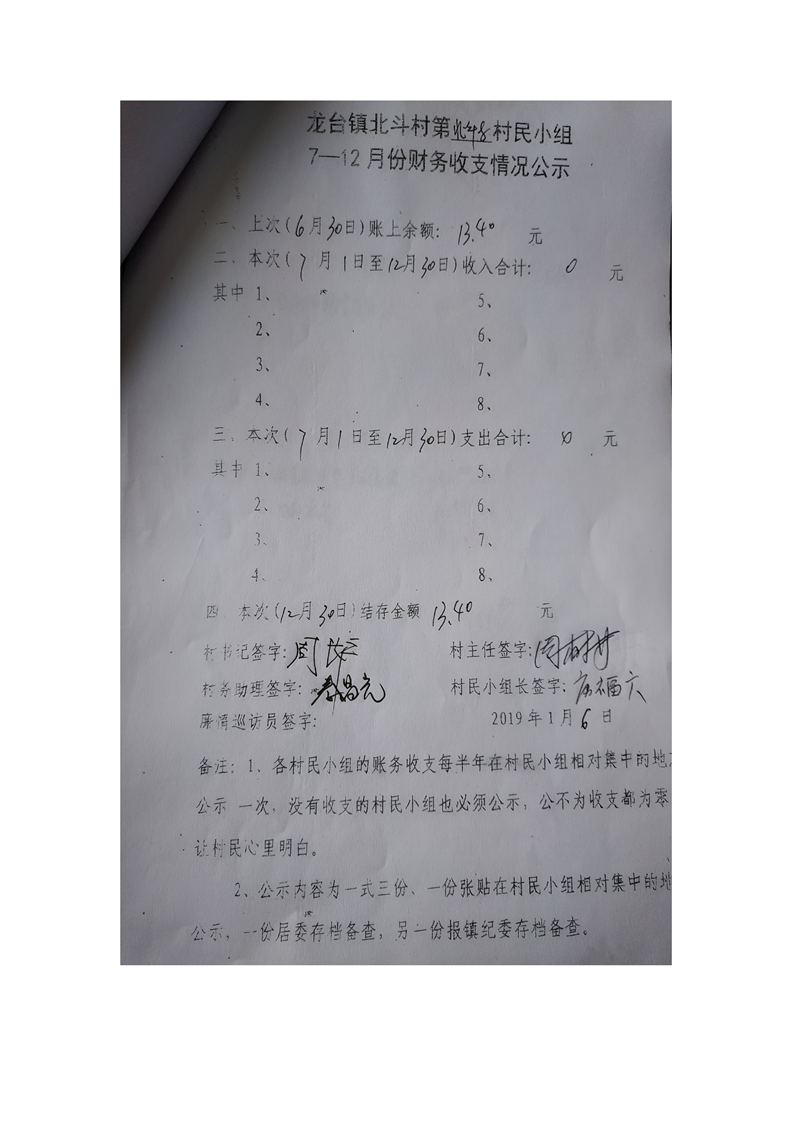 龙台镇北斗村第 村民小组
7—12月份财务收支情况公示
一、上次(6月30日)账上余额: 13.40 元
二、本次(7月1日至12月30日)收入合计: 0 元
其中 1、 5、
2、 6、
3、 7、
4、 8、
三、本次(7月1日至12月30日)支出合计: 0 元
其中 1、 5、
2、 6、
3、 7、
4、 8、
四、本次(12月30日)结存金额 13.40 元
村书记签字: 周 村主任签字: 周
村务助理签字: 村民小组长签字: 福六
廉情巡访员签字: 2019年1月6日
备注:1、各村民小组的账务收支每半年在村民小组相对集中的地
公示 一次,没有收支的村民小组也必须公示,公不为收支都为零
让村民心里明白。
2、公示内容为一式三份、一份张贴在村民小组相对集中的地
公示,一份居委存档备查,另一份报镇纪委存档备查。